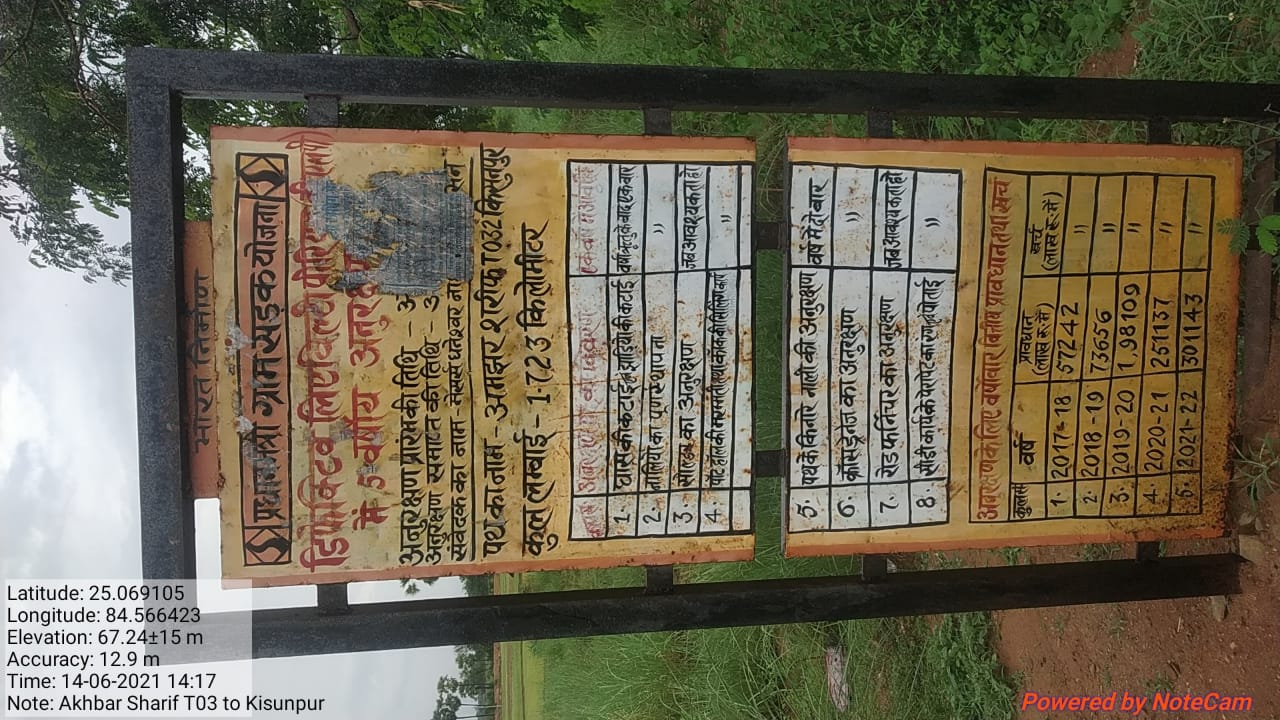 भारत निर्माण
प्रधानमंत्री ग्राम सड़क योजना
डिफेक्टिव लिएविलटी पीरियड
में 5 वर्षीय अनुरक्षण
अनुरक्षण प्रारम्भ की तिथि - अ
अनुरक्षण समाप्त की तिथि - अ
संवेदक का नाम - मेसर्स धनेश्वर
पथ का नाम - अमझर शरीफ T032 किसुनपुर
कुल लम्बाई - 1.723 किलोमीटर
1. घास की कटाई व झाड़ियों की कटाई वर्षा ऋतु के बाद एक बार
2. नालियों का पुनःस्थापना "
3. सोल्डर का अनुरक्षण जब आवश्यकता हो
4. "
5. पथ के किनारे नाली की अनुरक्षण वर्ष में दो बार
6. क्रॉस ड्रेनेज का अनुरक्षण "
7. रोड फर्निचर का अनुरक्षण जब आवश्यकता हो
8. सीडी कार्य के पैरापेट का रंगाई पोताई "
अनुरक्षण के लिए वर्षवार वित्तीय प्रावधान तथा खर्च
क्रम सं वर्ष प्रावधान (लाख रू. में) खर्च (लाख रू. में)
1. 2017-18 57242 "
2. 2018-19 73656 "
3. 2019-20 1,98109 "
4. 2020-21 251137 "
5. 2021-22 301143 "
Latitude: 25.069105
Longitude: 84.566423
Elevation: 67.24±15 m
Accuracy: 12.9 m
Time: 14-06-2021 14:17
Note: Akhbar Sharif T03 to Kisunpur
Powered by NoteCam